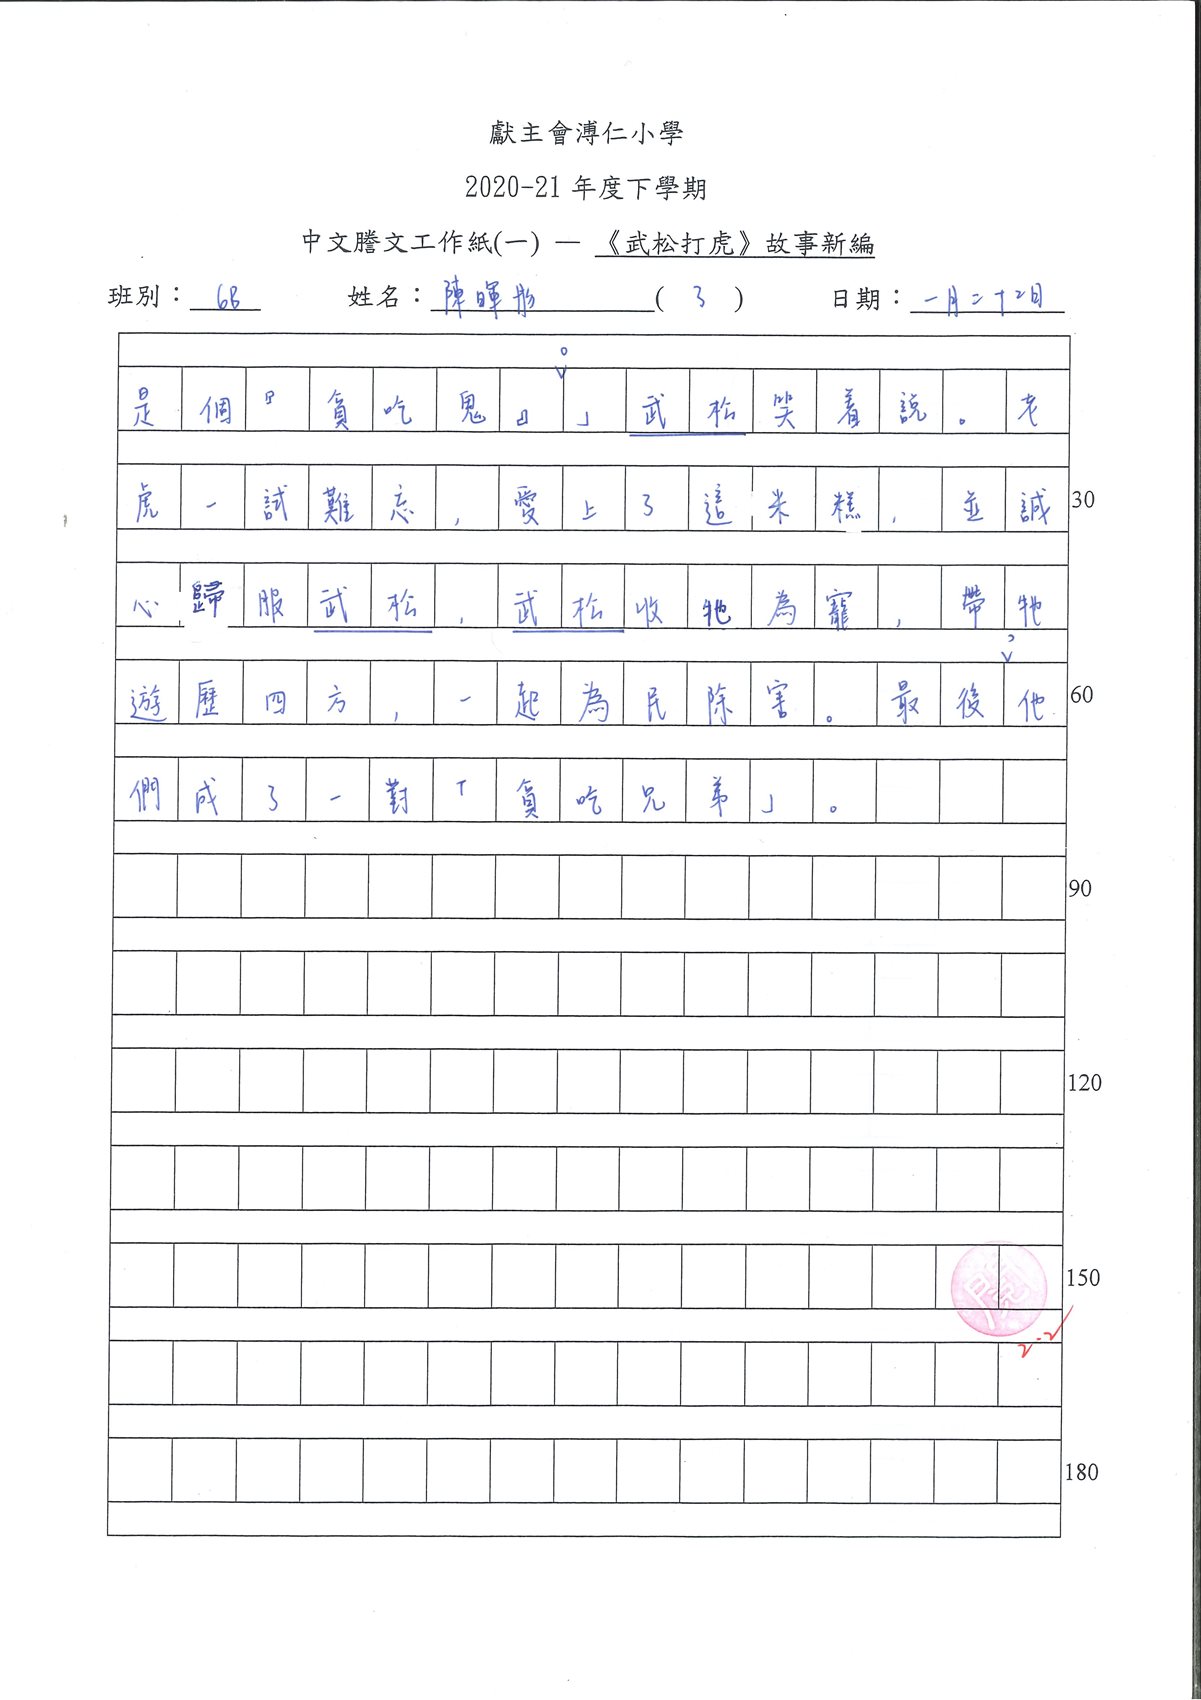 獻主會溥仁小學
2020-21 年度下學期
中文謄文工作紙(一) — 《武松打虎》故事新編
班別：6B 姓名：陳暉彤 (3) 日期：一月二十二日
是個『貪吃鬼』。」武松笑着說。老
虎一試難忘，愛上了這米糕，並誠 30
心歸服武松，武松收牠為寵，帶牠
遊歷四方，一起為民除害。最後，他 60
們成了一對「貪吃兄弟」。
90
120
150
2.2
180